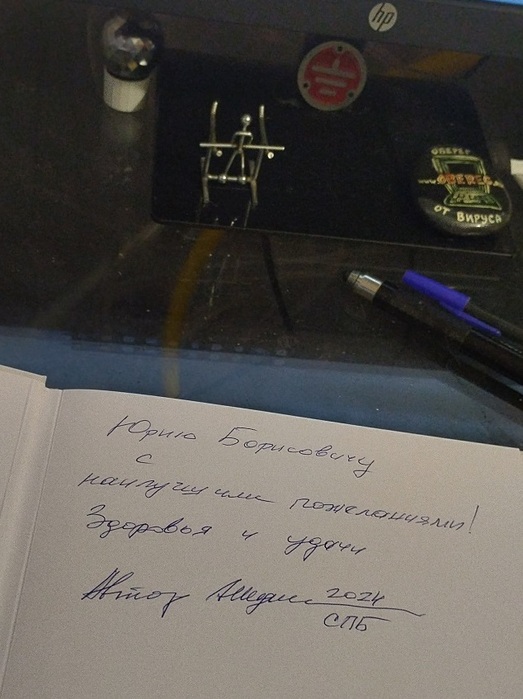 hp
ОБЕРЕГ
ОТ ВИРУСА
Юрию Борисовичу
с
наилучшими пожеланиями!
Здоровья и удачи
Автор 2024
СПБ